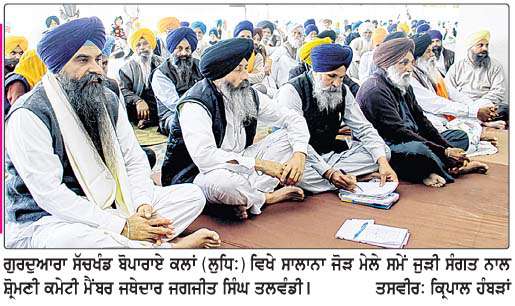 ਗੁਰਦੁਆਰਾ ਸੱਚਖੰਡ ਬੋਪਾਰਾਏ ਕਲਾਂ (ਲੁਧਿ:) ਵਿਖੇ ਸਾਲਾਨਾ ਜੋੜ ਮੇਲੇ ਸਮੇਂ ਜੁੜੀ ਸੰਗਤ ਨਾਲ
ਸ਼੍ਰੋਮਣੀ ਕਮੇਟੀ ਮੈਂਬਰ ਜਥੇਦਾਰ ਜਗਜੀਤ ਸਿੰਘ ਤਲਵੰਡੀ। ਤਸਵੀਰ: ਕ੍ਰਿਪਾਲ ਹੰਬੜਾਂ